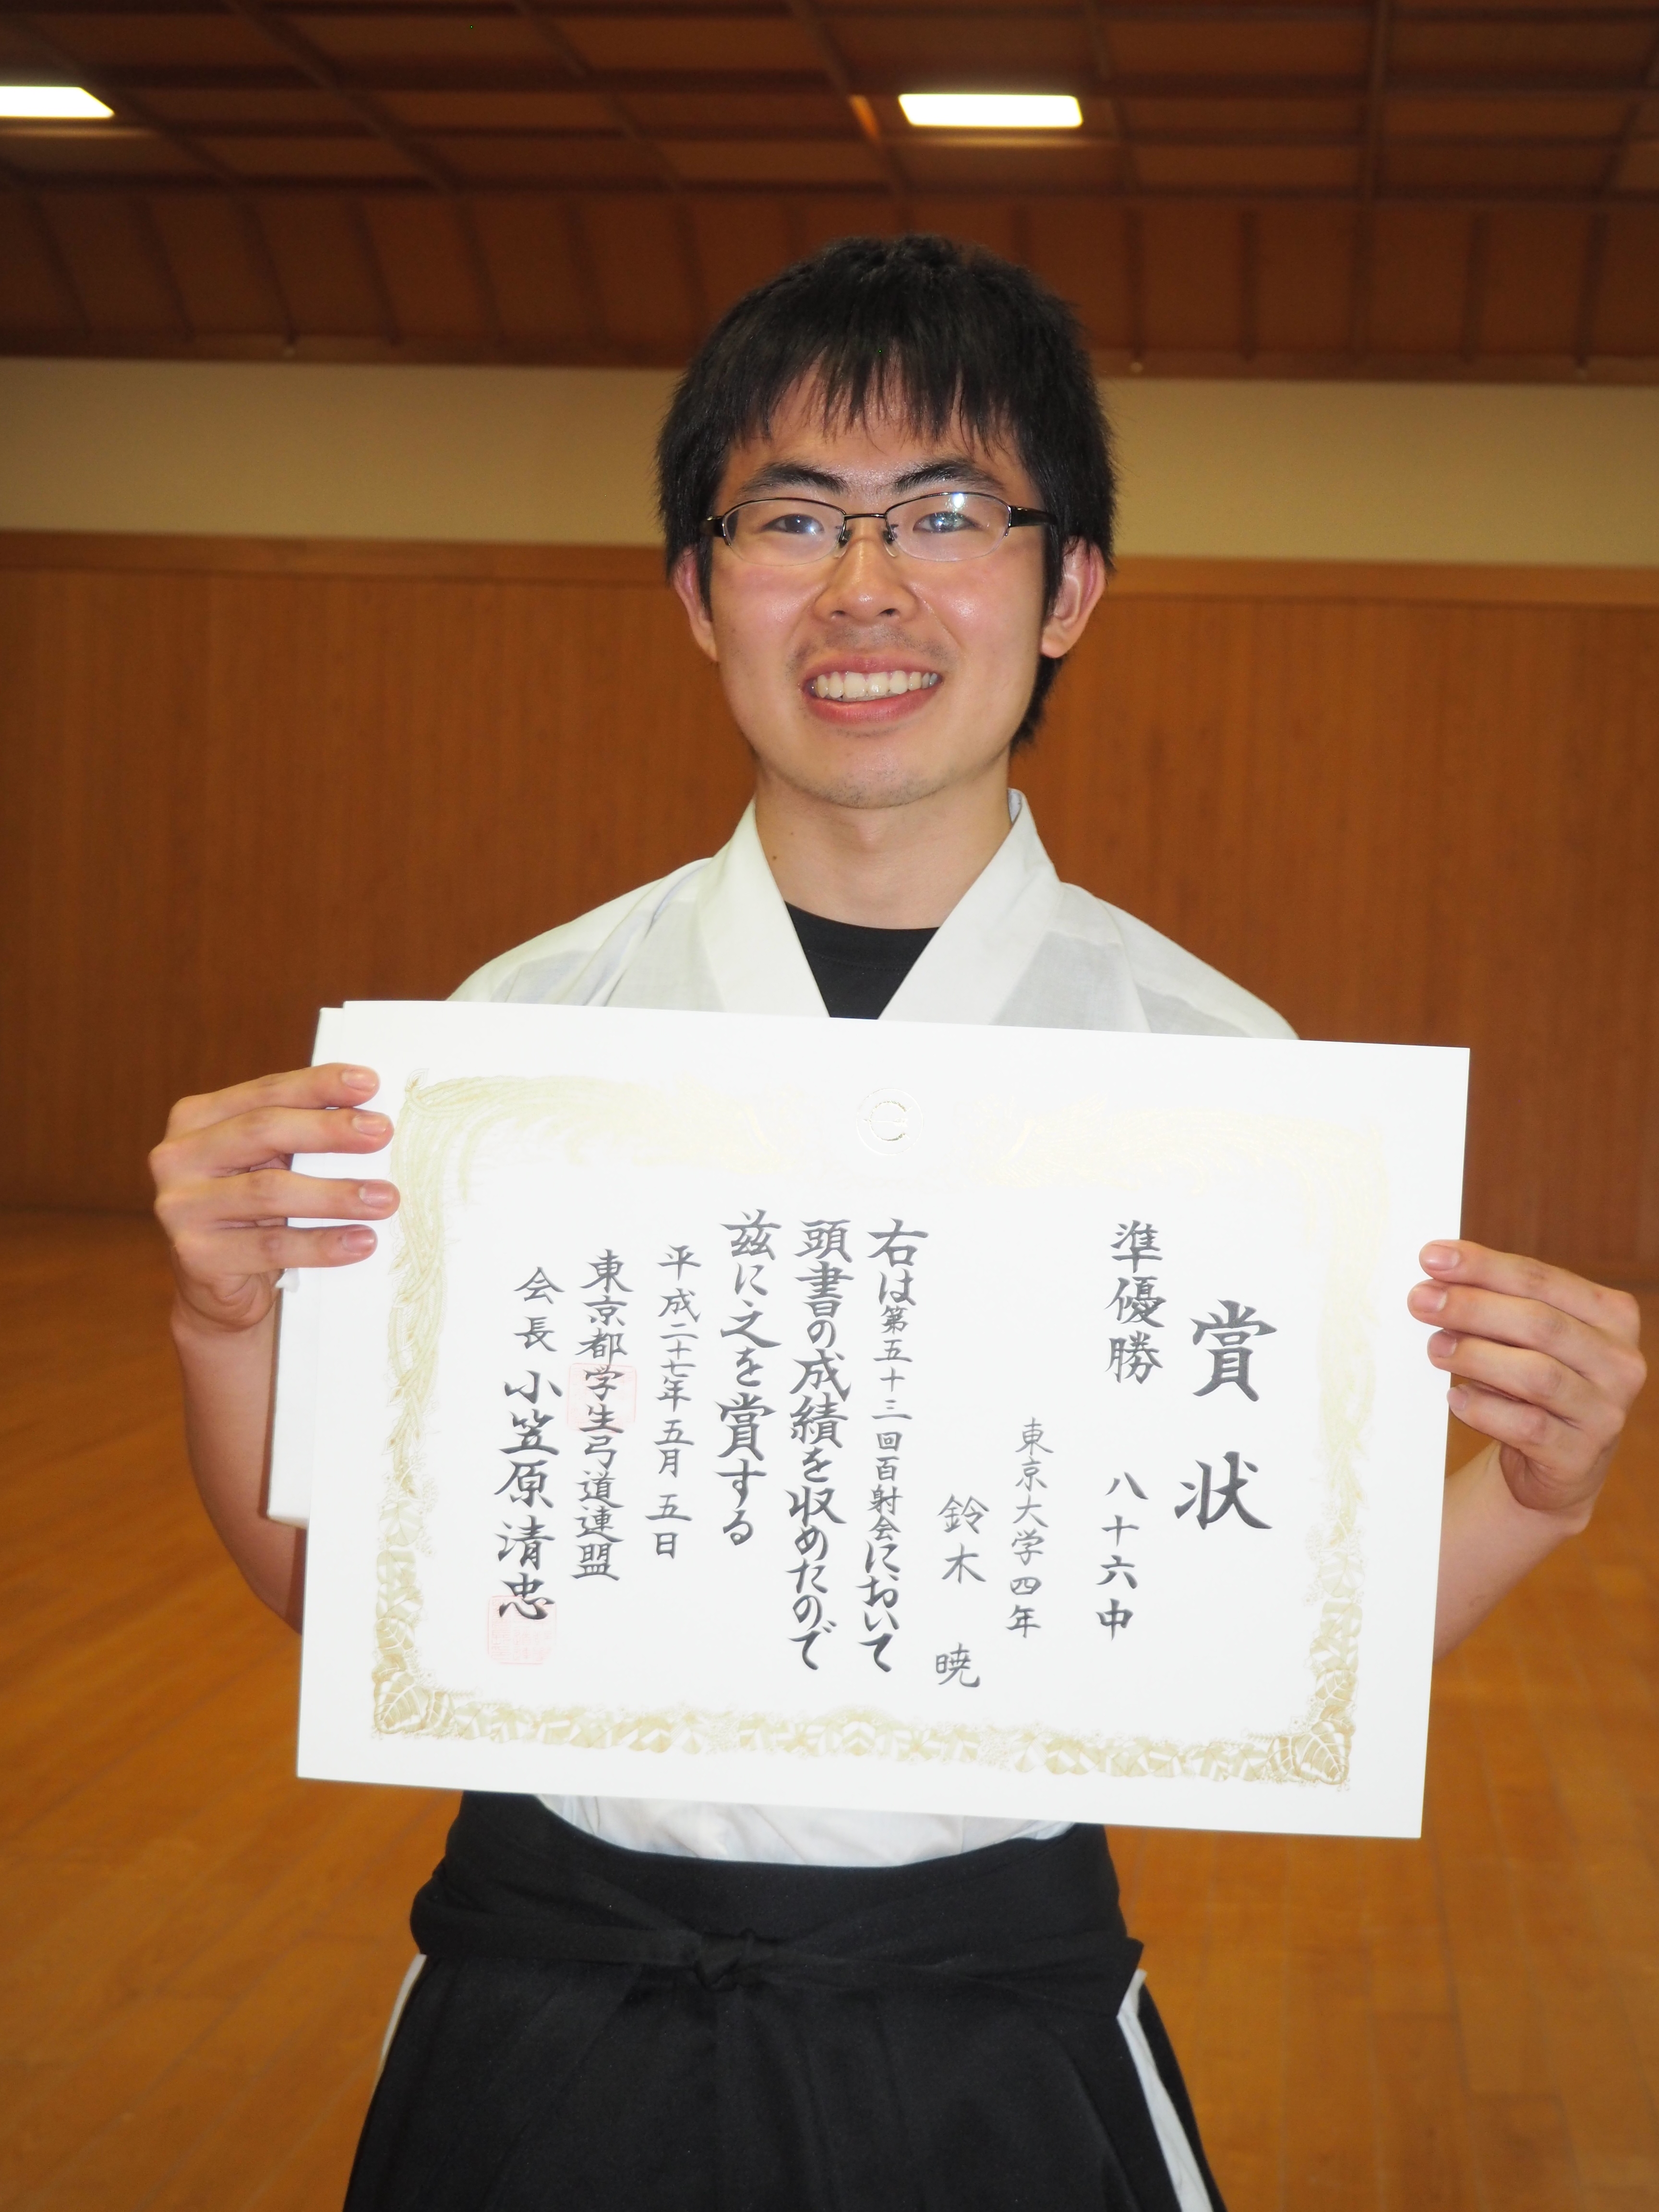 賞状
準優勝 八十六中
東京大学四年
鈴木 暁
右は第五十三回百射会において
頭書の成績を収めたので
茲に之を賞する
平成二十七年五月五日
東京都学生弓道連盟
会長 小笠原清忠